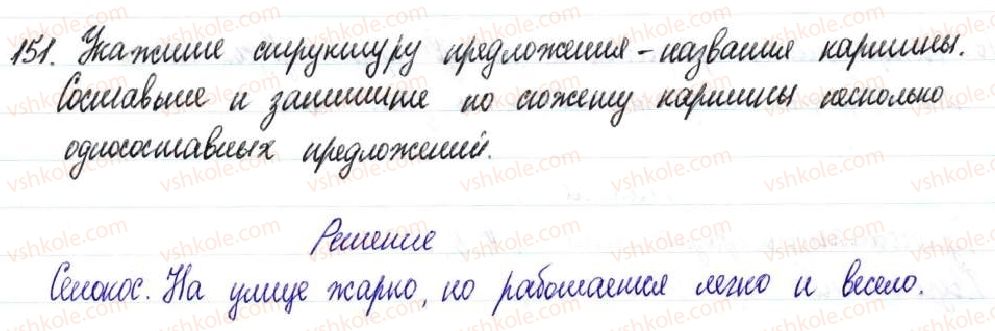 151. Укажите структуру предложения - названия картины.
Составьте и запишите по сюжету картины несколько
односоставных предложений.
Решение
Сенокос. На улице жарко, но работается легко и весело.